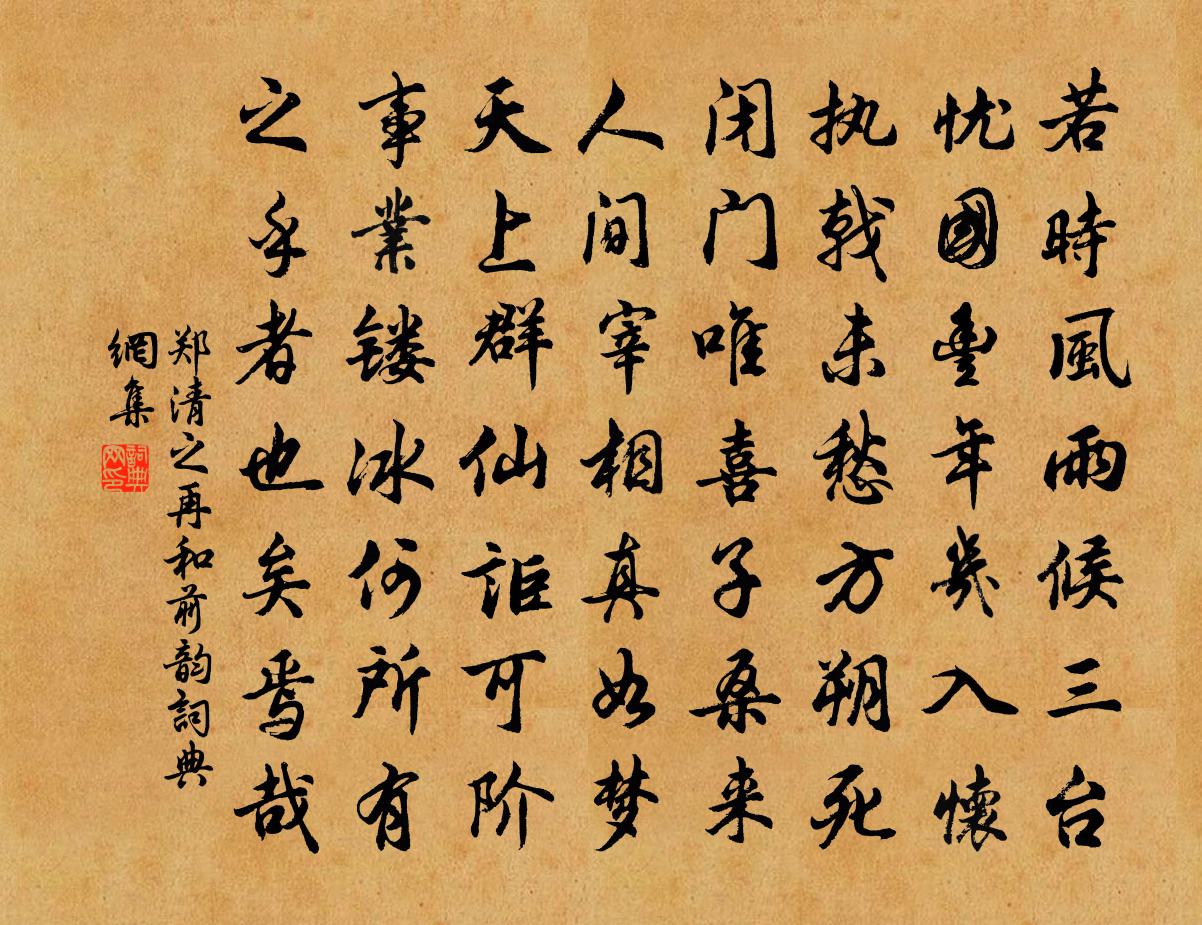 若時風雨候三台
忧國豊年幾入懷
执戟未愁方朔死
闭门唯喜子桑来
人间宰相真如梦
天上群仙詎可阶
事業镂冰何所有
之乎者也矣焉哉
郑清之再和前韵詞典
網集
詞典网印